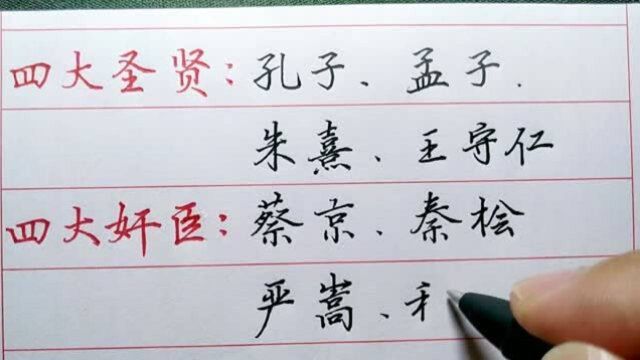 四大圣贤：孔子、孟子.
朱熹、王守仁
四大奸臣：蔡京、秦桧
严嵩、